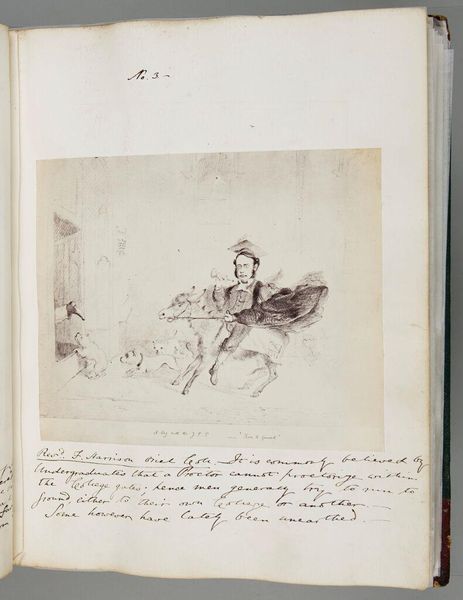 No. 3 –
A Day with the J. P. P. —— "Gone to ground."
Rev.d F. Harrison Oriel Coll. It is commonly believed by
Undergraduates that a Proctor cannot proctorize within
the College gates; hence men generally try to run to
ground either to their own College or another. –
Some however have lately been unearthed. –